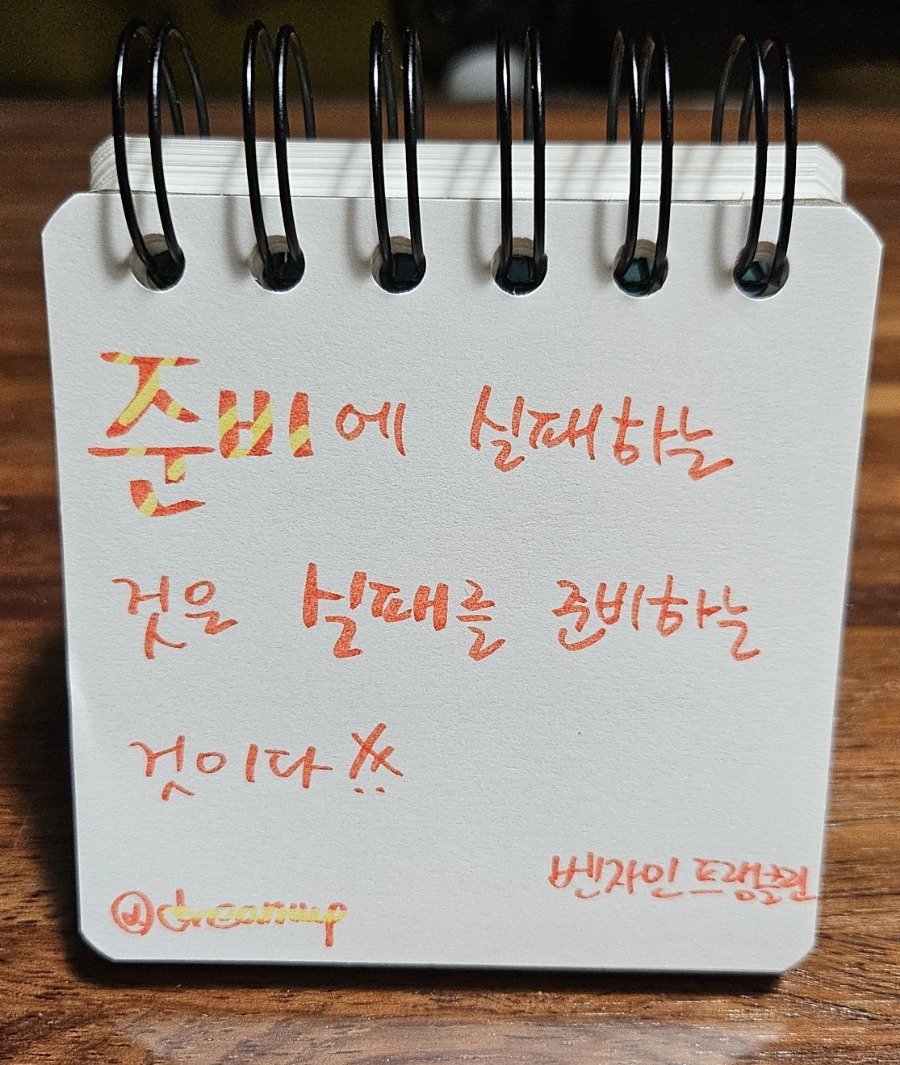 준비에 실패하는
것을 실패를 준비하는
것이다
벤자민 프랭클린
@dreamup